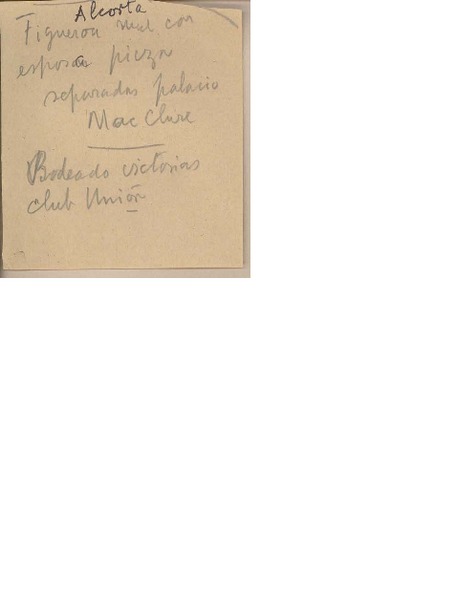 Alcorta
Figueroa mal con
esposa pieza
separadas palacio
Mac Clure
Rodeado victorias
club Unión